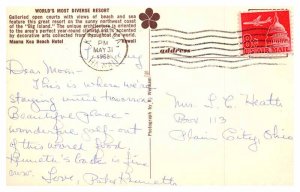 WORLD'S MOST DIVERSE RESORT
Galleried open courts with views of beach and sea
feature this great resort on the sunny northwest coast
of the "Big Island." The unique arrangement is oriented
to the area's perfect year-round climate and is accented by
decorative arts collected from throughout the world.
Mauna Kea Beach Hotel Hawaii
PM
MAY 31
1968
address
AIR MAIL
Photograph by R. Wenkam
Dear Mom-
This is where we're
staying until tomorrow
Beautiful Place -
wonderful
of this world food
back is fine
now. Love, Pat &
Mrs. L. C. Heath
Box 113
Plain City, Ohio